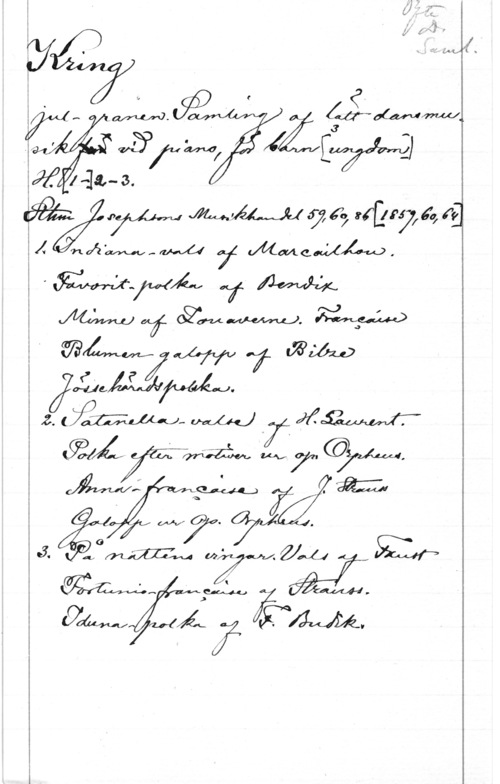 Kring
jul-granen. Samling af lätt dansmu-
sik för vid piano, för barn [ungdom]
H. [1-]2-3.
Sthm Josephsons Musikhandel 59,60,86 [1859,60,64]
1. Indiana-vals af Marcailhou.
Favorit-polka af Bendix
Minne af Zouaverne. Française
Blumen-galopp af Bilze
Jösseharadspolska.
2. Satanella-valse af H. Laurent.
Polka efter motiver ur op. Orpheus.
Anna-française af J. Strauss
Galopp ur op. Orpheus.
3. På nattens vingar. Vals af Faust
Fortunio-française af Strauss.
Iduna-polka af F. Budik.